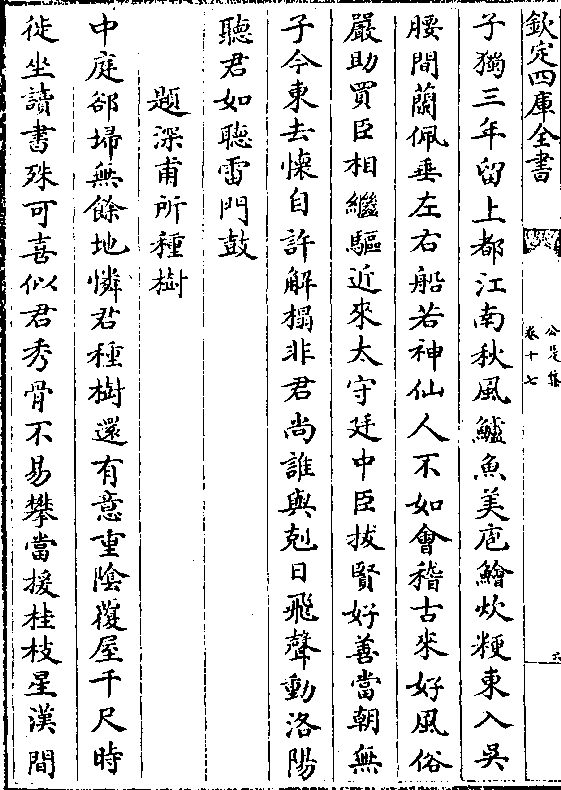 欽定四庫全書
公是集
卷十七
子獨三年留上都江南秋風鱸魚美庖鱠炊粳東入吳
腰間蘭佩垂左右船若神仙人不如會稽古來好風俗
嚴助買臣相繼驅近來太守廷中臣拔賢好善當朝無
子今東去懷自許解榻非君尚誰與剋日飛聲動洛陽
聽君如聽雷門鼓
題深甫所種樹
中庭郤埽無餘地憐君種樹還有意重陰覆屋千尺時
徙坐讀書殊可喜似君秀骨不易攀當援桂枝星漢間